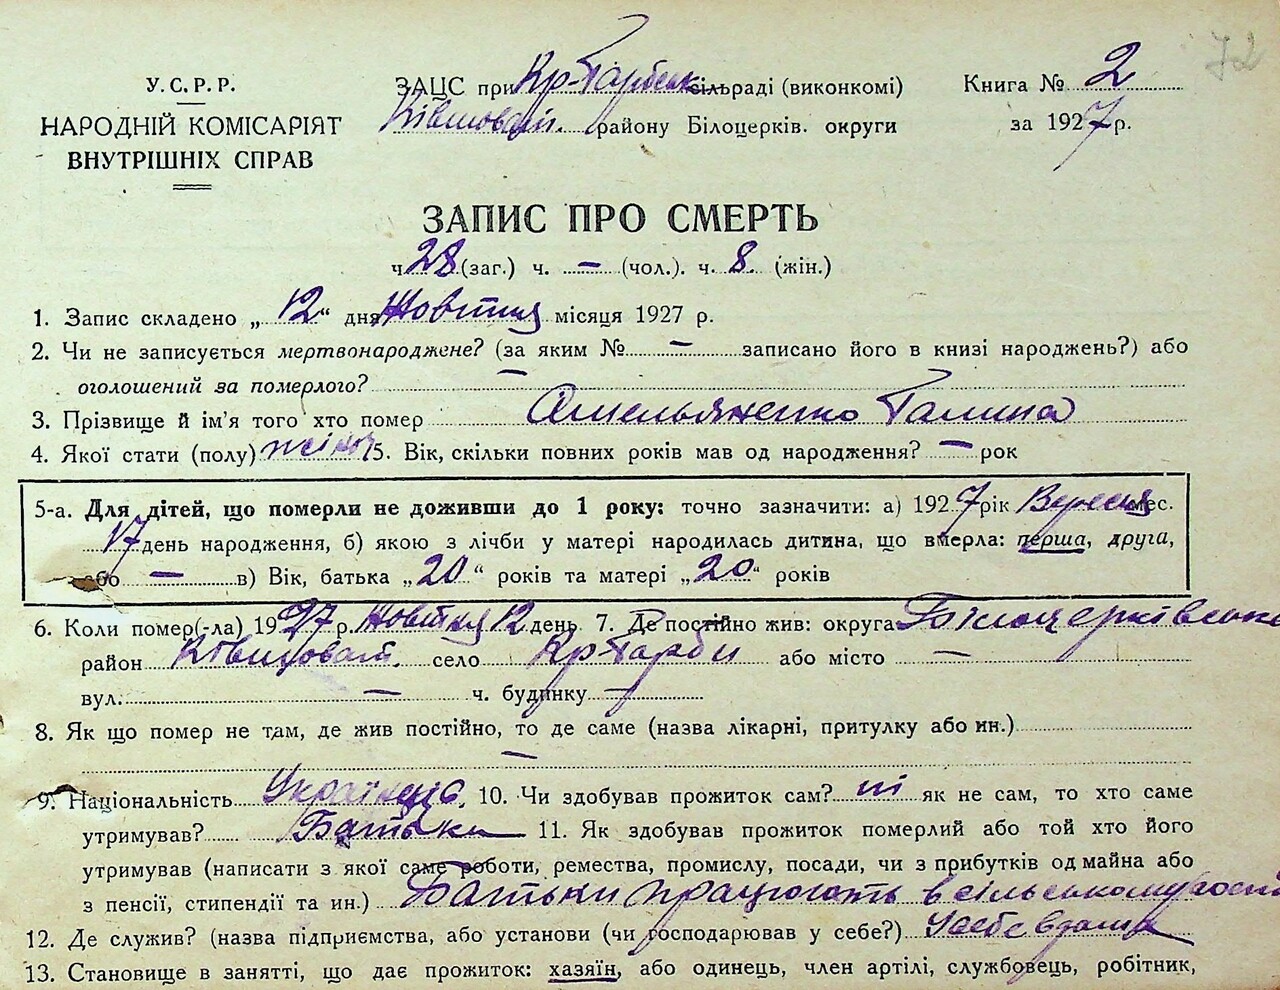 72
У.С.Р.Р.
НАРОДНІЙ КОМІСАРІЯТ
ВНУТРІШНІХ СПРАВ
ЗАЦС при Кр-Гарбськ сільраді (виконкомі)
Ківшоват. району Білоцерків. округи
Книга № 2
за 1927 р.
ЗАПИС ПРО СМЕРТЬ
ч. 28 (заг.) ч. — (чол.). ч. 8. (жін.)
1. Запис складено „12“ дня Жовтня місяця 1927 р.
2. Чи не записується мертвонароджене? (за яким № — записано його в книзі народжень?) або
оголошений за померлого? —
3. Прізвище й ім'я того хто помер Омельяненко Галина
4. Якої стати (полу) жіноч 5. Вік, скільки повних років мав од народження? — рок
5-а. Для дітей, що померли не доживши до 1 року: точно зазначити: а) 1927 рік Вересня мес.
17 день народження, б) якою з лічби у матері народилась дитина, що вмерла: перша, друга,
або — в) Вік, батька „20“ років та матері „20“ років
6. Коли помер(-ла) 1927 р. Жовтня 12 день 7. Де постійно жив: округа Білоцерківська
район Ківшоват. село Кр-Гарби або місто —
вул. — ч. будинку —
8. Як що помер не там, де жив постійно, то де саме (назва лікарні, притулку або ин.)
—
9. Національність Українська 10. Чи здобував прожиток сам? ні як не сам, то хто саме
утримував? Батьки 11. Як здобував прожиток померлий або той хто його
утримував (написати з якої саме роботи, ремества, промислу, посади, чи з прибутків од майна або
з пенсії, стипендії та ин.) Батьки працюють в сільському госп
12. Де служив? (назва підприємства, або установи (чи господарював у себе?) У себе вдома
13. Становище в занятті, що дає прожиток: хазяїн, або одинець, член артілі, службовець, робітник,